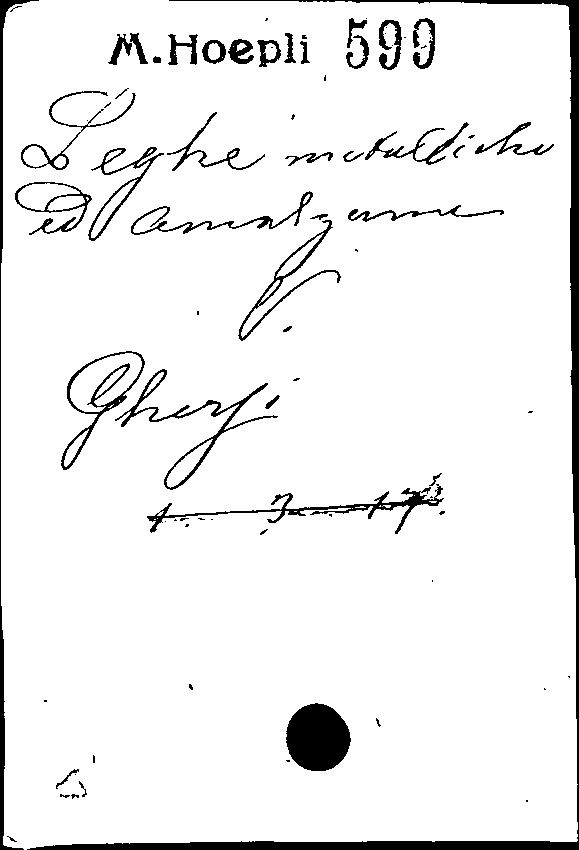 M. Hoepli 599
Leghe metalliche
ed amalgame
V.
Ghersi